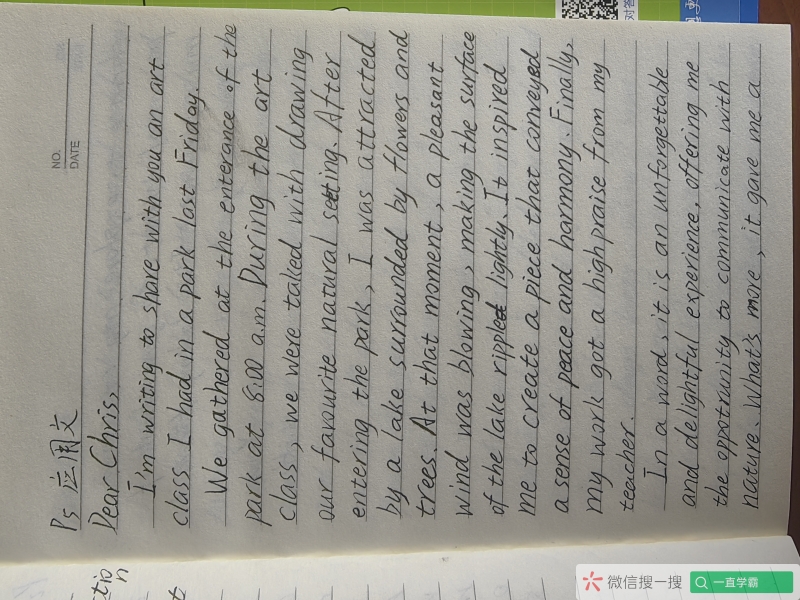 P5 应用文
NO.
DATE
Dear Chris,
I'm writing to share with you an art
class I had in a park last Friday.
We gathered at the enterance of the
park at 8:00 a.m. During the art
class, we were taked with drawing
our favourite natural setting. After
entering the park, I was attracted
by a lake surrounded by flowers and
trees. At that moment, a pleasant
wind was blowing, making the surface
of the lake ripple lightly. It inspired
me to create a piece that conveyed
a sense of peace and harmony. Finally,
my work got a high praise from my
teacher.
In a word, it is an unforgettable
and delightful experience, offering me
the oppotrunity to communicate with
nature. What's more, it gave me a
ctio
n
微信搜一搜
一直学霸